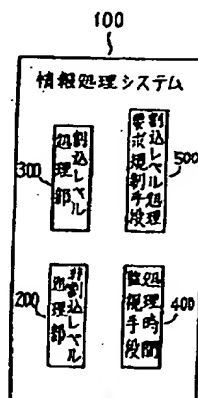 100
情報処理システム
割込レベル
処理部
300
割込レベル処理
要求規制手段
500
非割込レベル
処理部
200
処理時間
監視手段
400